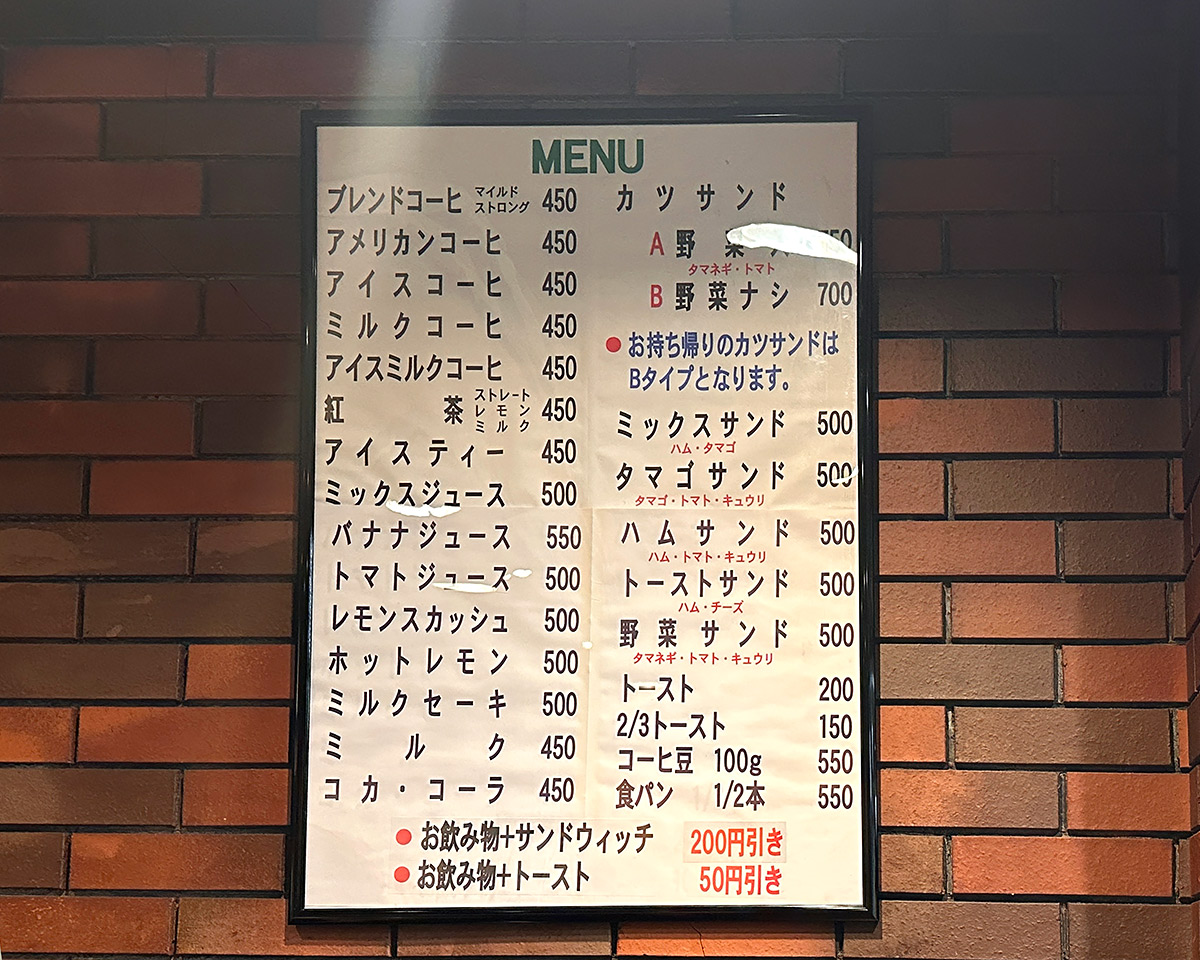 MENU
ブレンドコーヒ マイルド ストロング 450
アメリカンコーヒ 450
アイスコーヒ 450
ミルクコーヒ 450
アイスミルクコーヒ 450
紅茶 ストレート レモン ミルク 450
アイスティー 450
ミックスジュース 500
バナナジュース 550
トマトジュース 500
レモンスカッシュ 500
ホットレモン 500
ミルクセーキ 500
ミルク 450
コカ・コーラ 450
カツサンド
A 野菜
タマネギ・トマト
B 野菜ナシ 700
●お持ち帰りのカツサンドは
Bタイプとなります。
ミックスサンド 500
ハム・タマゴ
タマゴサンド 500
タマゴ・トマト・キュウリ
ハムサンド 500
ハム・トマト・キュウリ
トーストサンド 500
ハム・チーズ
野菜サンド 500
タマネギ・トマト・キュウリ
トースト 200
2/3トースト 150
コーヒ豆 100g 550
食パン 1/2本 550
●お飲み物+サンドウィッチ 200円引き
●お飲み物+トースト 50円引き